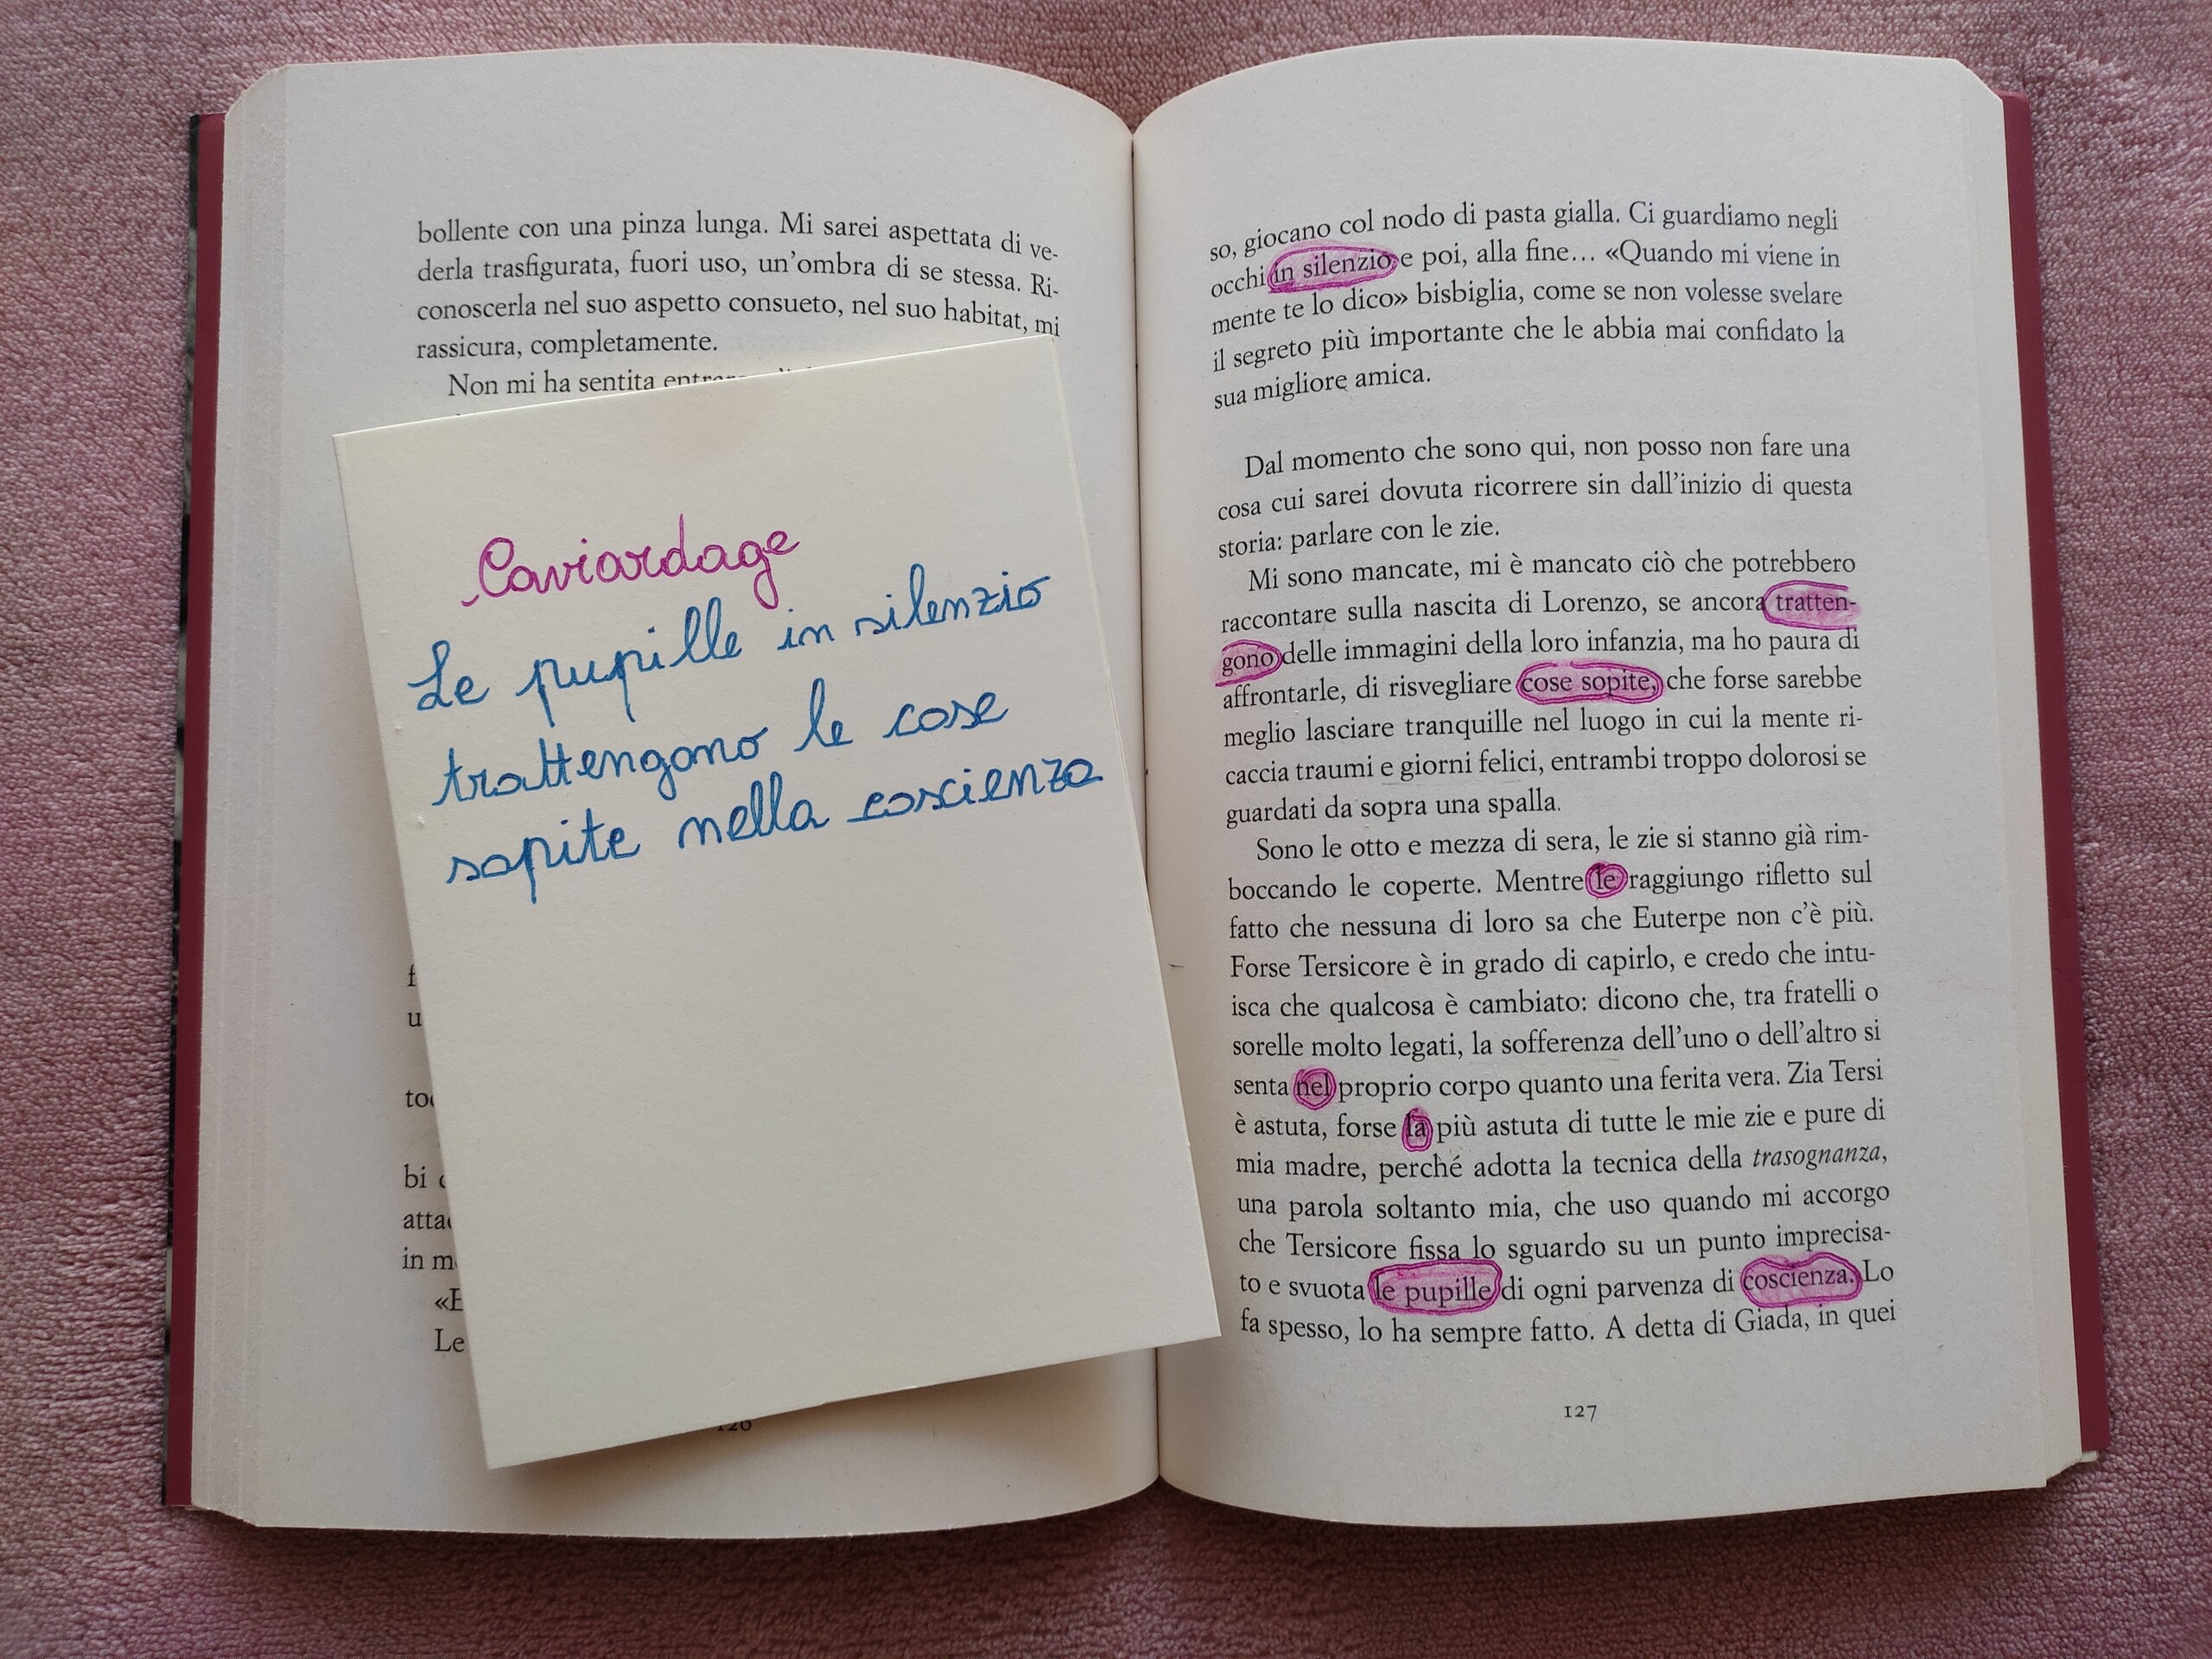 bollente con una pinza lunga. Mi sarei aspettata di ve-
derla trasfigurata, fuori uso, un'ombra di se stessa. Ri-
conoscerla nel suo aspetto consueto, nel suo habitat, mi
rassicura, completamente.
Non mi ha sentita
Caviardage
Le pupille in silenzio
trattengono le cose
sopite nella coscienza
f
u
bi
in
«E
Le
126
so, giocano col nodo di pasta gialla. Ci guardiamo negli
occhi in silenzio e poi, alla fine… «Quando mi viene in
mente te lo dico» bisbiglia, come se non volesse svelare
il segreto più importante che le abbia mai confidato la
sua migliore amica.
Dal momento che sono qui, non posso non fare una
cosa cui sarei dovuta ricorrere sin dall'inizio di questa
storia: parlare con le zie.
Mi sono mancate, mi è mancato ciò che potrebbero
raccontare sulla nascita di Lorenzo, se ancora tratten-
gono delle immagini della loro infanzia, ma ho paura di
affrontarle, di risvegliare cose sopite, che forse sarebbe
meglio lasciare tranquille nel luogo in cui la mente ri-
caccia traumi e giorni felici, entrambi troppo dolorosi se
guardati da sopra una spalla.
Sono le otto e mezza di sera, le zie si stanno già rim-
boccando le coperte. Mentre le raggiungo rifletto sul
fatto che nessuna di loro sa che Euterpe non c'è più.
Forse Tersicore è in grado di capirlo, e credo che intu-
isca che qualcosa è cambiato: dicono che, tra fratelli o
sorelle molto legati, la sofferenza dell'uno o dell'altro si
senta nel proprio corpo quanto una ferita vera. Zia Tersi
è astuta, forse la più astuta di tutte le mie zie e pure di
mia madre, perché adotta la tecnica della trasognanza,
una parola soltanto mia, che uso quando mi accorgo
che Tersicore fissa lo sguardo su un punto imprecisa-
to e svuota le pupille di ogni parvenza di coscienza. Lo
fa spesso, lo ha sempre fatto. A detta di Giada, in quei
127